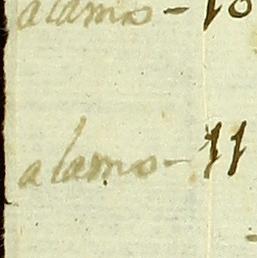 alamo - 10
alamo - 11